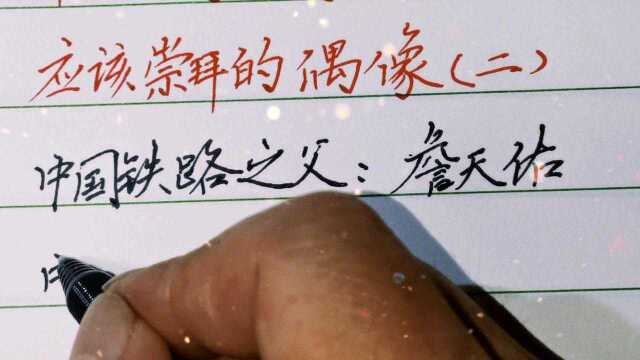 应该崇拜的偶像(二)
中国铁路之父:詹天佑